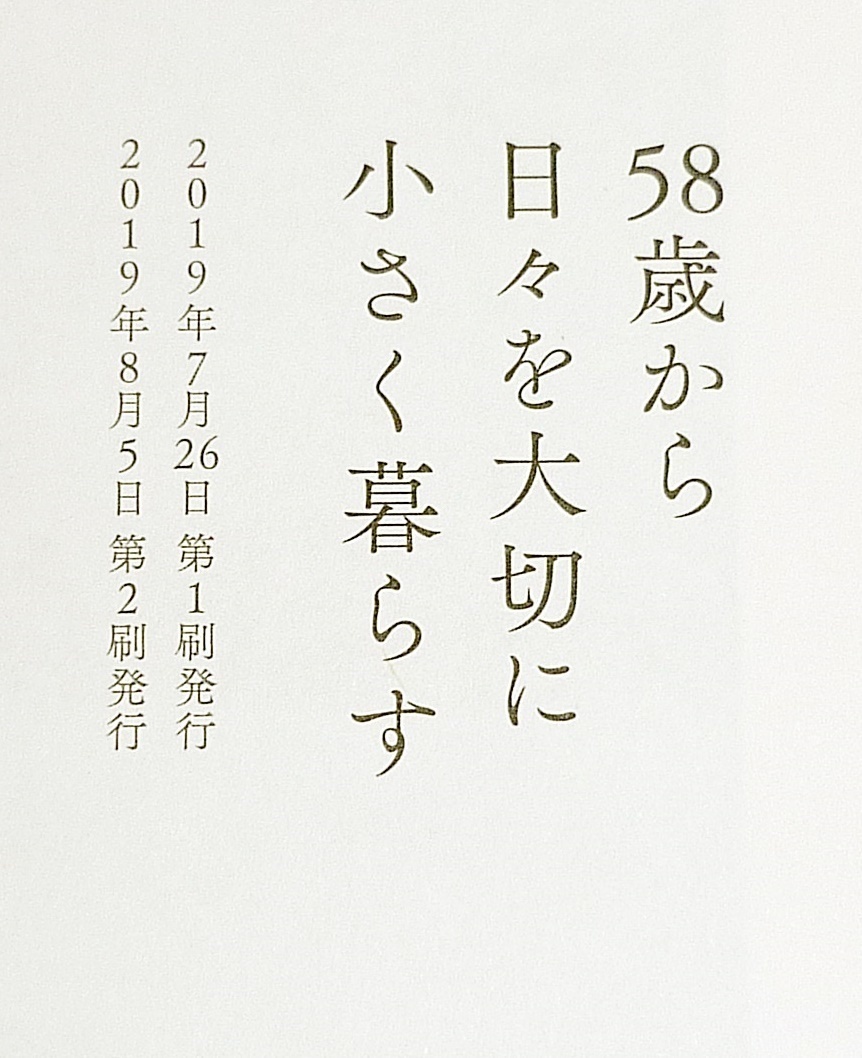 58歳から
日々を大切に
小さく暮らす
2019年7月26日 第1刷発行
2019年8月5日 第2刷発行